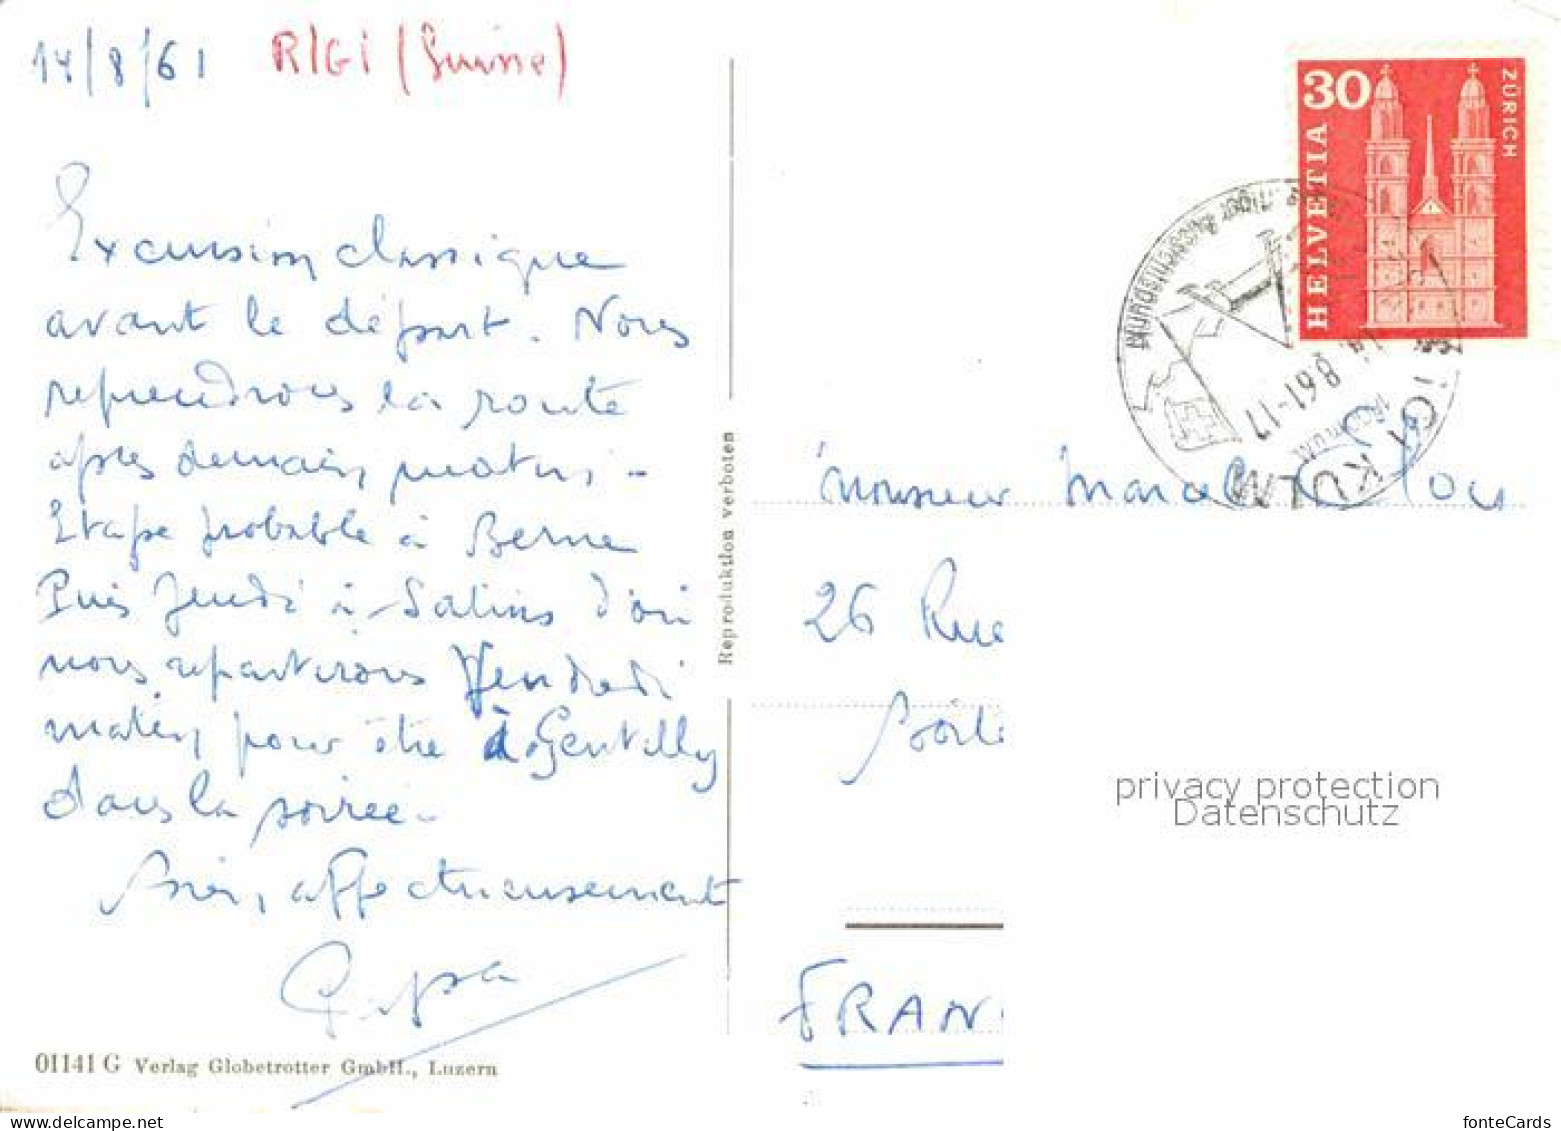 14/8/61 RIGI (Suisse)
Excursion classique
avant le départ. Nous
reprendrons la route
après demain matin -
Etape probable à Berne
Puis Jeudi à Salins d'où
nous repartirons Vendredi
matin pour être à Gentilly
dans la soirée -
Bien affectueusement
Papa
01141 G Verlag Globetrotter GmbH., Luzern
Reproduktion verboten
30
HELVETIA
ZÜRICH
RIGI KULM
8 61-17
Monsieur Marcel
26 Rue
FRAN
privacy protection
Datenschutz
fonteCards